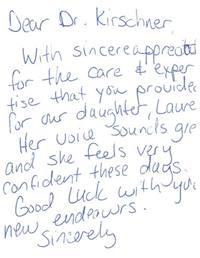 Dear Dr. Kirschner,
With sincere appreciat
for the care & exper
tise that you provided
for our daughter, Laure
Her voice sounds gre
and she feels very
confident these days.
Good Luck with you
new endeavors.
Sincerely